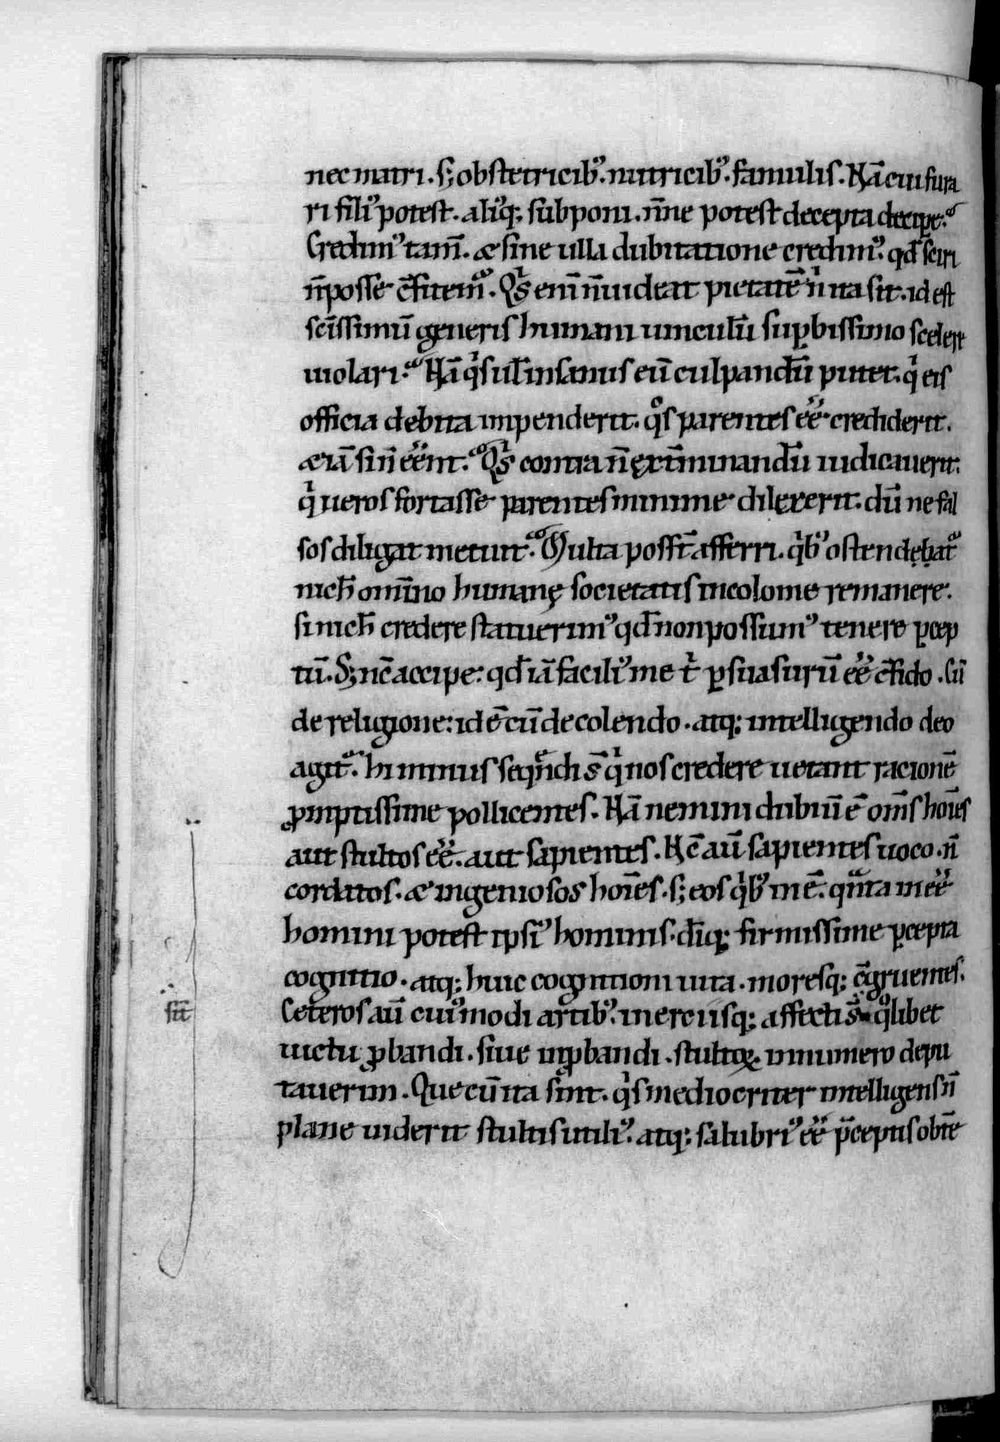 nec matri. s; obstetricib᷒. nutricib᷒. famulis. Nā cui fura
ri fili᷒ potest. ali᷒q; subponi. n̄ne potest decepta decipe?
Credim᷒ tam̄. & sine ulla dubitatione credim᷒. qđ sciri
n̄ posse c̄fitem᷒. Qͥs eni n̄ uideat pietatē nͥ ita sit. id est
sc̄issimū generis humani uinculū sup̱bissimo scelere
uiolari? Nā qͥs ul̄ insanus eū culpandū putet. qͥ eis
officia debita impenderit. qͦs parentes eē crediderit.
& iā si n̄ eēnt? Qͥs contra n̄ ext̄minandū iudicauerit.
qͥ ueros fortasse parentes minime dilexerit. dū ne fal
sos diligat metuit? Multa poss̄t afferri. qͥb᷒ ostendębat᷑
nich̄ omīno humanę societatis incolome remanere.
si nich̄ credere statuerim᷒ qđ non possum᷒ tenere p̱cep
tū. S; nc̄ accipe. qđ iā facili᷒ me tͥ p̱suasurū eē c̄fido. Cū
de religione: id ē cū de colendo. atq; intelligendo deo
agit᷑. hi minus seq̄ndi s̄ qͥ nos credere uetant racionē
ꝓmptissime pollicentes. Nā nemini dubiū ē om̄s hoīes
aut stultos eē. aut sapientes. Nc̄ aū sapientes uoco. n̄
cordatos. & ingeniosos hoīes. s; eos qͥb᷒ inē. qͣnta ineē
homini potest ipsi᷒ hominis. dīq; firmissime p̱cepta
cognitio. atq; huic cognitioni uita. moresq; c̄gruentes.
Ceteros aū cui᷒modi artib᷒. inerciisq; affecti s̄ qͦlibet
uictu ꝓbandi. siue inꝓbandi. stultoꝝ in numero depu
tauerim. Que cū ita sint. qͥs mediocriter intelligens n̄
plane uiderit stultis utili᷒. atq; salubri᷒ eē p̄ceptis obtē
sīt